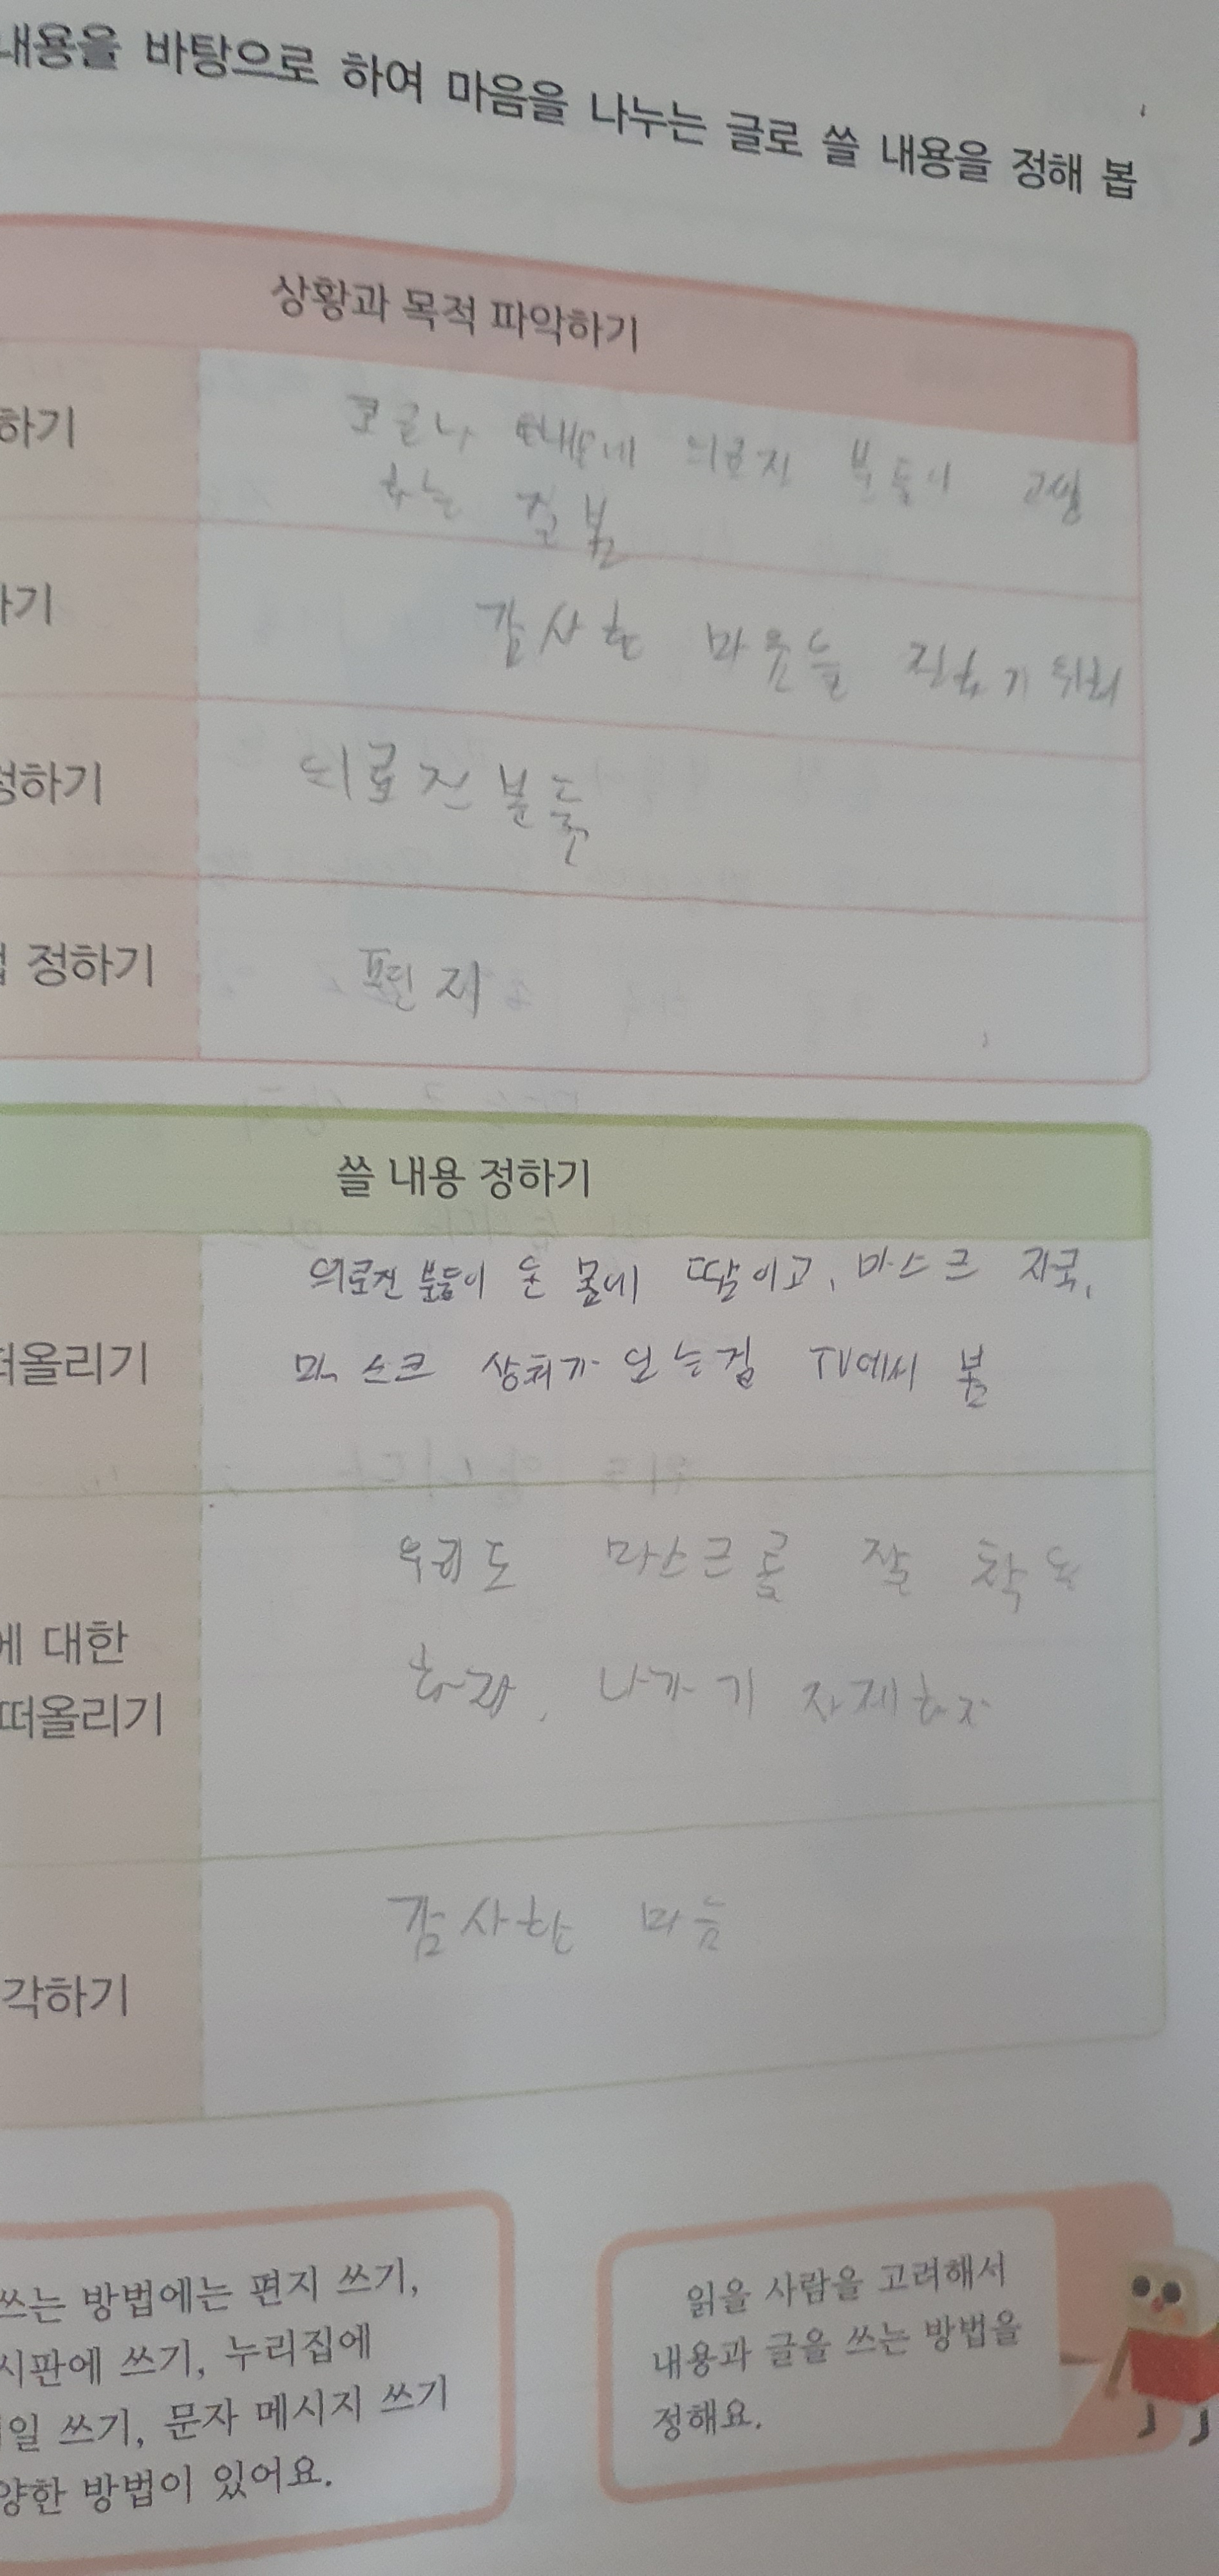 내용을 바탕으로 하여 마음을 나누는 글로 쓸 내용을 정해 봅
상황과 목적 파악하기
하기
코로나 때문에 의료진 분들이 고생
하는 걸 봄
하기
감사한 마음을 전하기 위해
정하기
의료진분들
정하기
편지
쓸 내용 정하기
의료진 분들이 온 몸에 땀이고, 마스크 자국,
떠올리기
마스크 상처가 있는걸 TV에서 봄
우리도 마스크를 잘 착용
에 대한
하자, 나가기 자제하자
떠올리기
감사한 마음
각하기
쓰는 방법에는 편지 쓰기,
시판에 쓰기, 누리집에
일 쓰기, 문자 메시지 쓰기
양한 방법이 있어요.
읽을 사람을 고려해서
내용과 글을 쓰는 방법을
정해요.